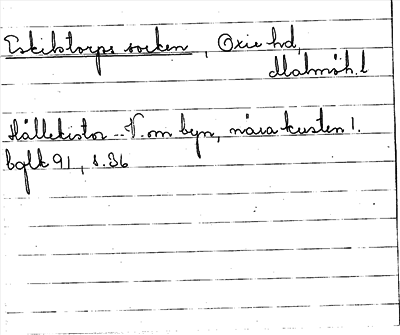 Eskilstorps socken, Oxie hd,
Malmöh. l
Hällekistor - V. om byn, nära kusten 1.
bglk 91, s. 36